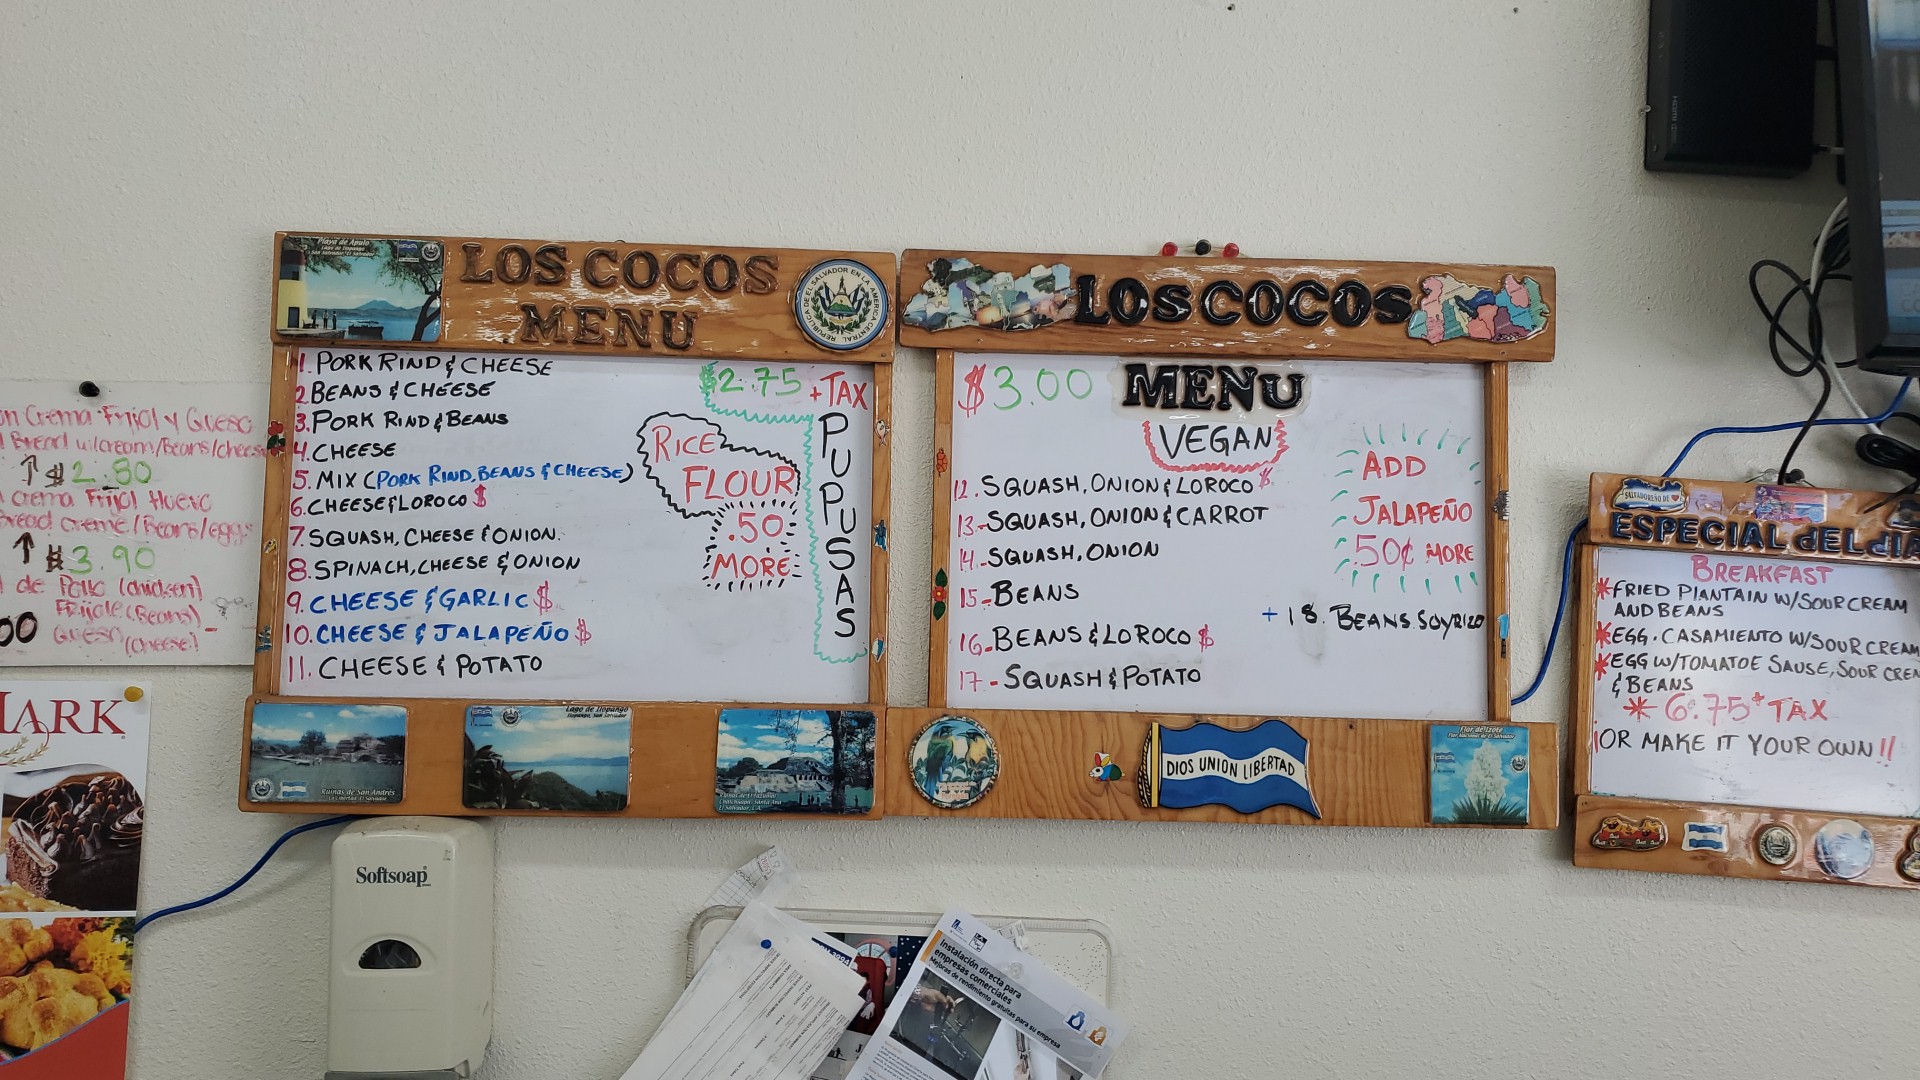 Crema Frijol y Queso
Bread w/cream/Beans/cheese
$2.80
Crema Frijol Huevo
Bread creme/Beans/eggs
$3.90
de Pollo (chicken)
Frijole (Beans)
Queso (cheese)
Playa de Apulo
Lago de Ilopango
San Salvador, El Salvador
LOS COCOS
MENU
REPUBLICA DE EL SALVADOR EN LA AMERICA CENTRAL
1. PORK RIND & CHEESE
2 BEANS & CHEESE
3. PORK RIND & BEANS
4. CHEESE
5. MIX (PORK RIND, BEANS & CHEESE)
6. CHEESE & LOROCO $
7. SQUASH, CHEESE & ONION.
8. SPINACH, CHEESE & ONION
9. CHEESE & GARLIC $
10. CHEESE & JALAPEÑO $
11. CHEESE & POTATO
$2.75 + TAX
RICE
FLOUR
.50
MORE
PUPUSAS
Ruinas de San Andrés
La Libertad, El Salvador
Lago de Ilopango
Ilopango, San Salvador
LOS COCOS
MENU
$3.00
VEGAN
12. SQUASH, ONION & LOROCO $
13- SQUASH, ONION & CARROT
14- SQUASH, ONION
15- BEANS
16- BEANS & LOROCO $
17- SQUASH & POTATO
ADD
JALAPEÑO
.50¢ MORE
+ 18. BEANS. SOYRIZO
DIOS UNION LIBERTAD
Flor de Izote
Flor Nacional de El Salvador
SALVADOREÑO DE
ESPECIAL dEL dIA
BREAKFAST
* FRIED PLANTAIN W/SOUR CREAM
AND BEANS
* EGG. CASAMIENTO W/SOUR CREAM
* EGG W/TOMATOE SAUSE, SOUR CREA
& BEANS
* 6.75 + TAX
OR MAKE IT YOUR OWN!!
ARK
Softsoap
Instalación directa para
empresas comerciales
Mejoras de rendimiento gratuitas para su empresa